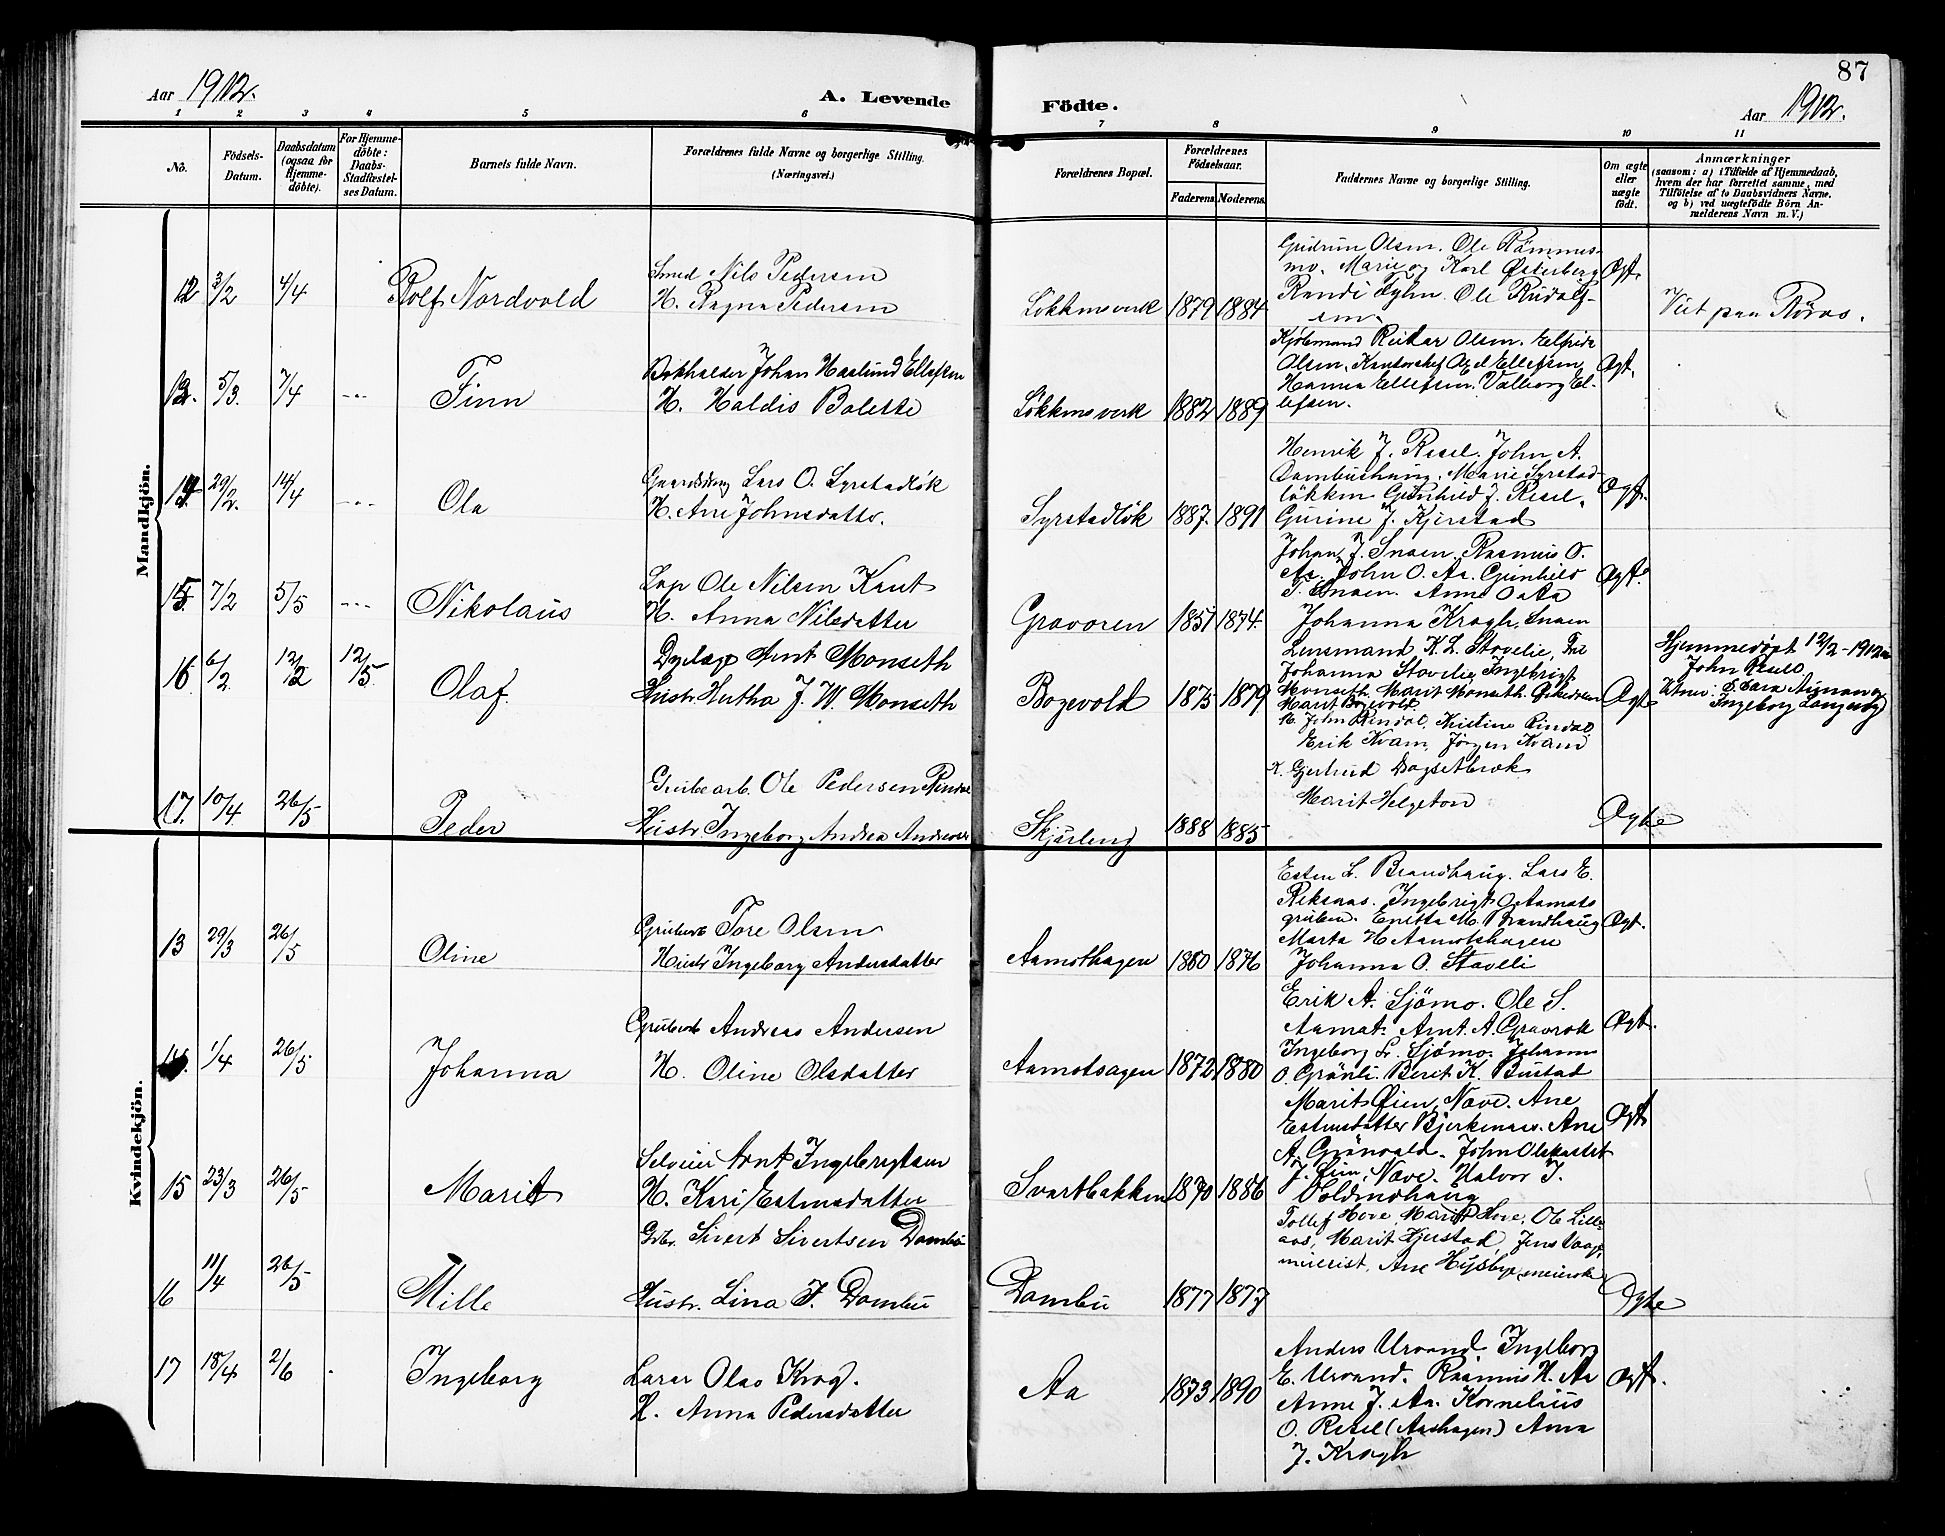 87
Aar 1912. A. Levende Födte. Aar 1912.
1 2 3 4 5 6 7 8 9 10 11
No.
Födsels-
Datum.
Daabsdatum
(ogsaa for
Hjemme-
döbte).
For Hjemme-
döbte:
Daabs-
Stadfæstel-
ses Datum.
Barnets fulde Navn.
Forældrenes fulde Navne og borgerlige Stilling.
(Næringsvei.)
Forældrenes Bopæl.
Forældrenes
Födselsaar.
Faderens. Moderens.
Faddernes Navne og borgerlige Stilling.
Om ægte
eller
uægte
födt.
Anmærkninger
(saasom: a) i Tilfælde af Hjemmedaab,
hvem der har forrettet samme, med
Tilföielse af to Daabsvidners Navne,
og b) ved uægtefödte Börn An-
melderens Navn m. V.)
Mandkjön.
12 3/2 4/4 Rolf Nordvold
Smed Nils Pedersen
H. Ragna Pedersen
Løkkens verk 1879 1884
Gudrun Olsen. Ole Rømmes-
mo. Marie og Karl Østerberg
Randi Ole Rudolf-
sen.
Ægt.
paa Röros.
13. 5/3. 7/4 --- Finn
Bokholder Johan Haslund Ellefsen
H. Haldis Bolette
Løkkens verk 1882 1889
Kjøbmand Reidar Olsen. Elfride
Olsen. Kontorchef Axel Ellefsen,
Hanna Ellefsen. Valborg El-
lefsen.
Ægt.
14 29/2. 14/4 --- Ola
Gaardbrug Lars O. Syrstadløk
H. Ane Johnsdatter.
Syrstadløk 1887. 1891
Henrik J. Resel. John A.
Dombushaug. Marie Syrstad-
løkken Gunhild J. Resel.
Gurine J. Kjerstad
Ægt.
15 7/2 5/5 --- Nikolaus
Lap Ole Nilsen Kant
H. Anna Nilsdatter
Gravoren 1851 1874.
Johan J. Snoen. Rasmus O.
Aa. John O. Aa. Gunhild
T. Snoen. Anne O. Aa
Johanna Krogh. Snoen
Ægt.
16 6/2 12/2 12/5. Olaf.
Dyrlæge Arnt Monseth
Hustr. Hertha J. W. Monseth
Bogevold 1875 1879
Lensmand K. L. Stovelie, Fru
Johanna Stovelie, Ingebrigt
Monseth. Marit Monseth.
Marit Bogevold.
Ægte
Hjemmedøpt 12/2-1912 av
John Resell.
Ingeborg
17. 10/4. 26/5 Peder
Grubearb. Ole Pedersen Rindal
Hustr. Ingeborg Andrea Andersd.
1888 1885
John Rindal. Kristine Rindal,
Erik Kvam, Jørgen Kvam
Gjertrud Dragsetbrek
Marit Helgeton
Ægte
Kvindekjön.
13 29/3 26/5 Oline
Grubearb Tore Olsen
Hustr Ingeborg Andersdatter
Aamothagen 1880 1876
Esten L. Brandhaug. Lars E.
Reksnas. Ingebrigt O. Aamots
gruben. M. Brandhaug
Marta H. Aamotshagen
Johanna O. Staveli
Ægt.
14. 1/4 26/5 Johanna
Grubearb Andreas Andersen
H. Oline Olsdatter
Aamotsagen 1872 1880
Erik A. Sjømo. Ole S.
Aamot. Arnt. A. Gravrok
Ingeborg L. Sjømo. Johanna
O. Grönli. Beret K. Bustad
Ægt.
15 23/3 26/5 Marit
Selveier Arnt Ingebrigtsen
H. Kari Estensdatter
Svartbakken 1870 1886
Marit Øien, Næve. Ane
Estensdatter Bjerkenaas. Ane
A. Grönvold. John Olskastet
J. Øien, Næve. Halvor J.
Voldmohaug
Ægt
16 11/4 26/5 Mille
Grbr. Sivert Sivertsen Dombu
Hustr. Lina J. Dombu
Dombu 1877 1877
Tollef Hove, Marit Hove, Ole Lille-
aas, Marit Kjerstad, Jens
meierist, Ane meierske
Ægte
17 18/4 2/6 Ingeborg
Lærer Olas Krog.
H. Anna Pedersdatter
Aa 1873 1890
Anders Urvand. Ingeborg
E. Urvand. Rasmus H. Aa
Anne J. Aa. Kornelius
O. Resel (Aashagen) Anna
J. Krogh
Ægt.